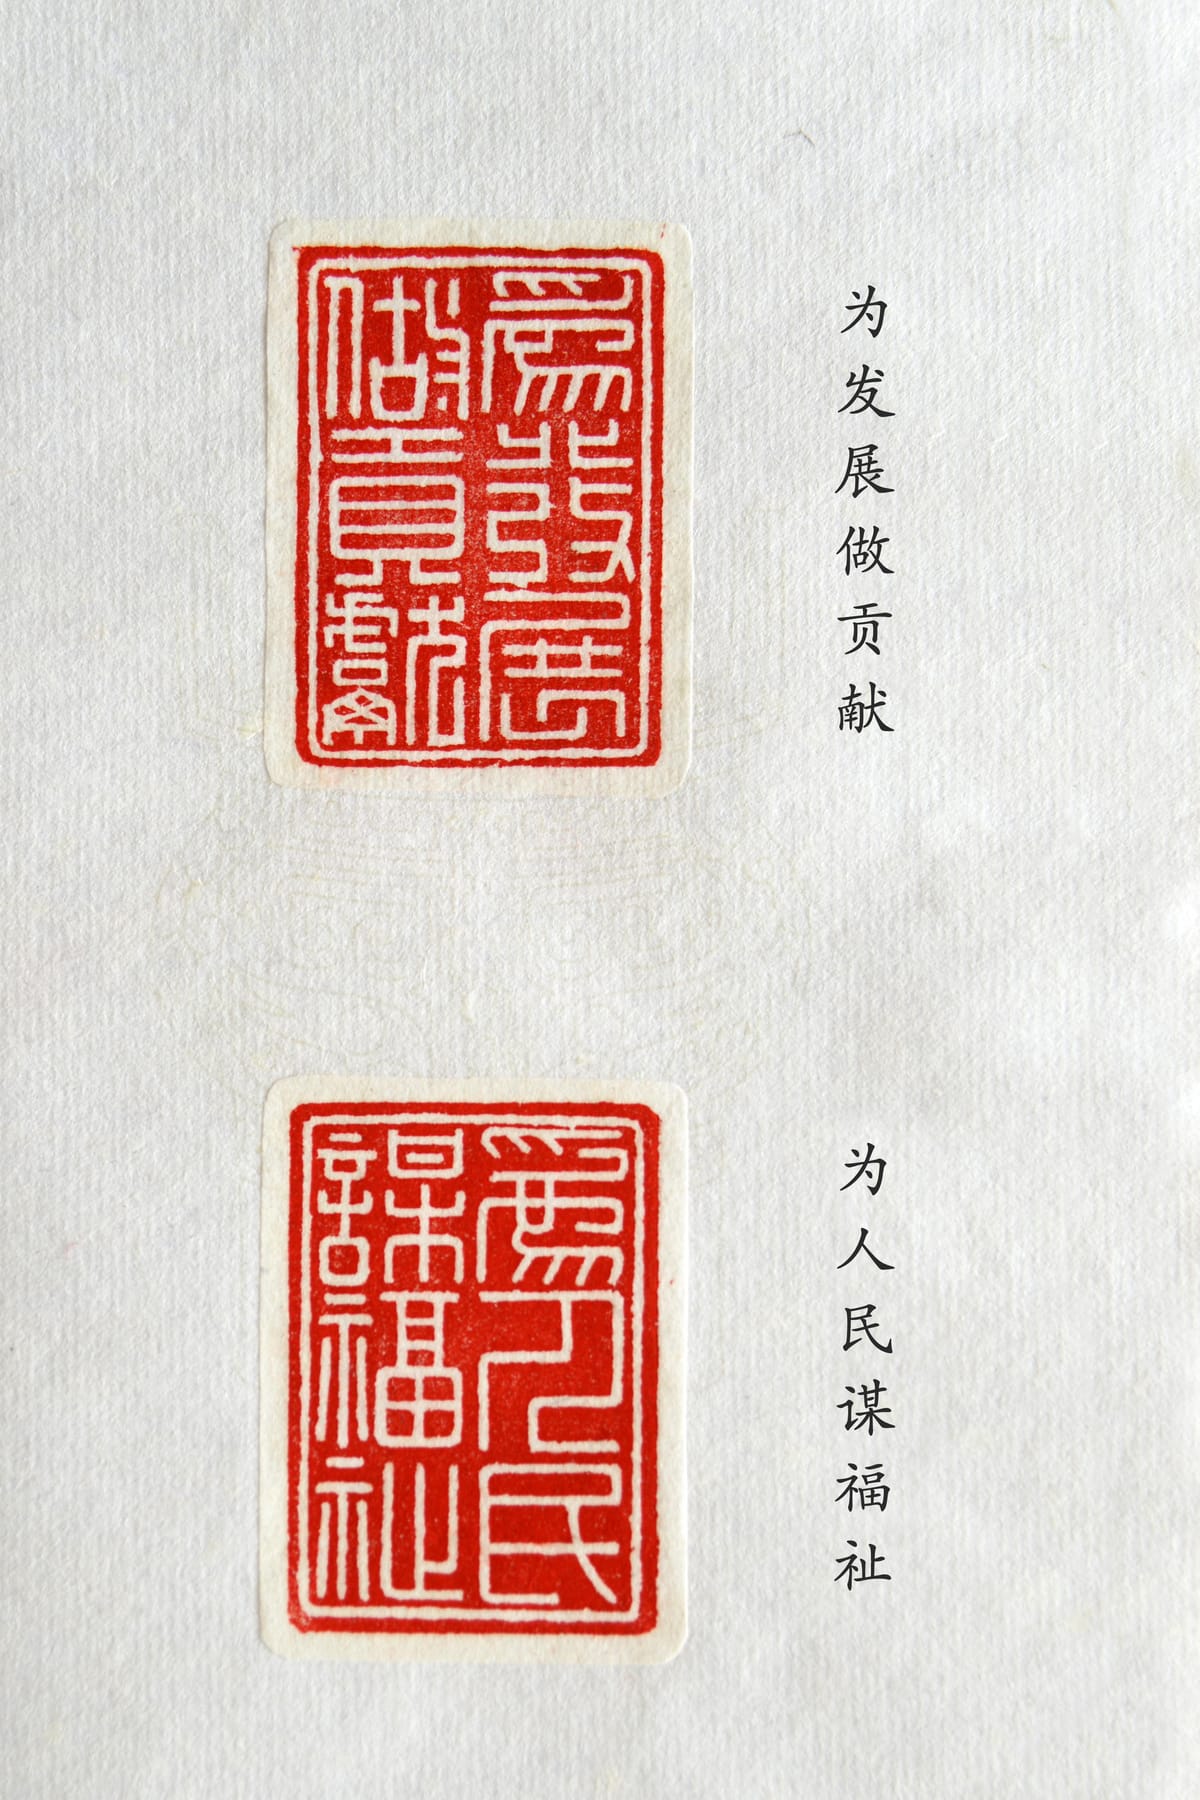 為發展
做貢獻
为发展做贡献
為人民
謀福祉
为人民谋福祉